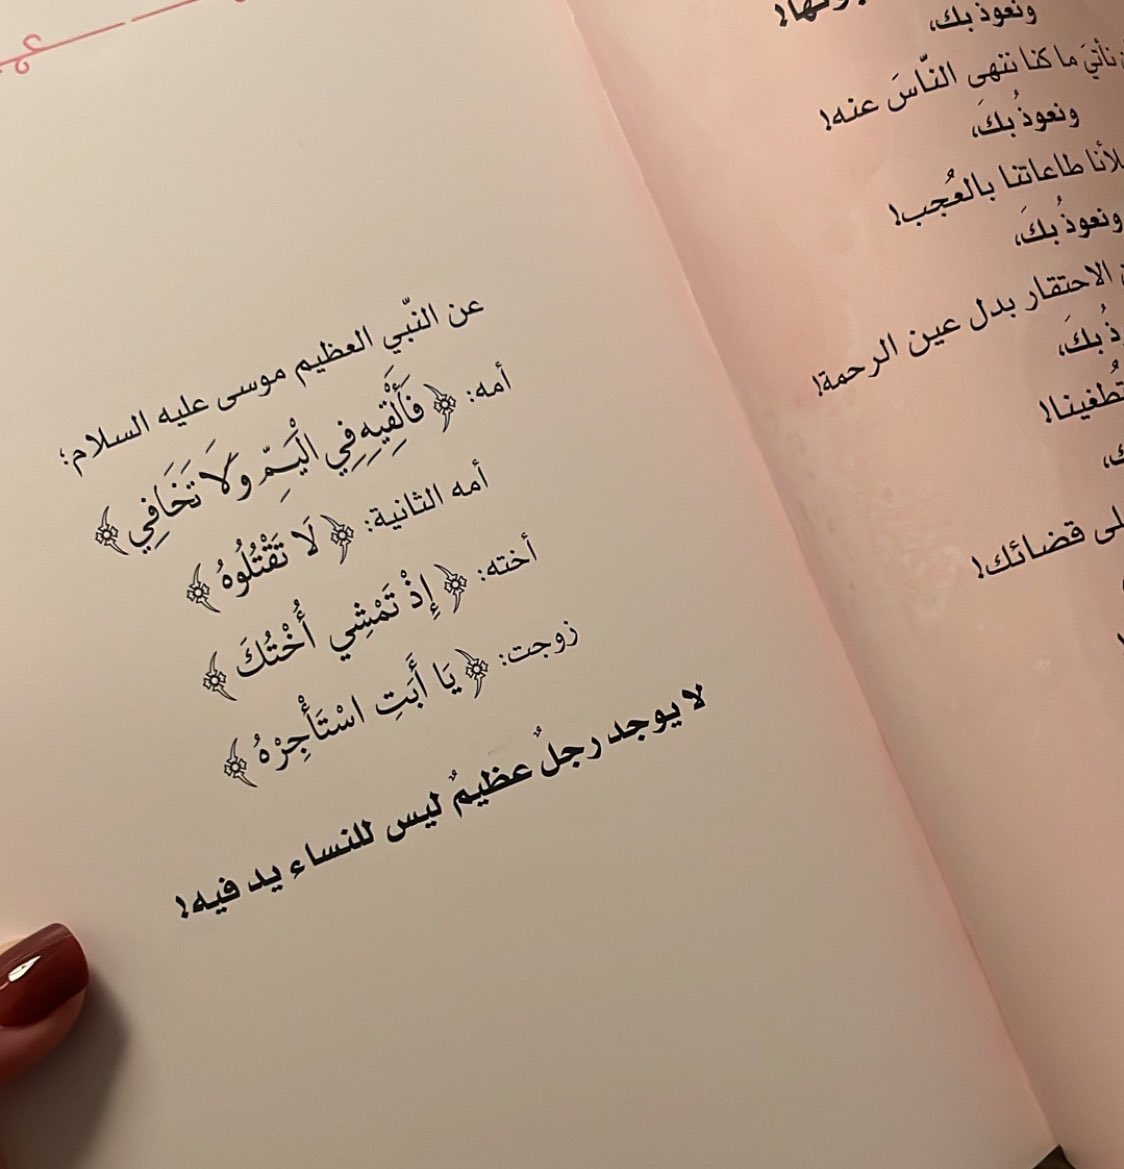 ونعوذ بك،
نأتيَ ما كنا ننهى النّاسَ عنه!
ونعوذُ بكَ،
طاعاتنا بالعُجب!
ونعوذُ بكَ،
الاحتقار بدل عين الرحمة!
بكَ،
تُطفينا!
قضائك!
عن النّبي العظيم موسى عليه السلام؛
أمه: ﴿فَأَلْقِيهِ فِي الْيَمِّ وَلَا تَخَافِي﴾
أمه الثانية: ﴿لَا تَقْتُلُوهُ﴾
أخته: ﴿إِذْ تَمْشِي أُخْتُكَ﴾
زوجت: ﴿يَا أَبَتِ اسْتَأْجِرْهُ﴾
لا يوجد رجلٌ عظيمٌ ليس للنساء يد فيه!